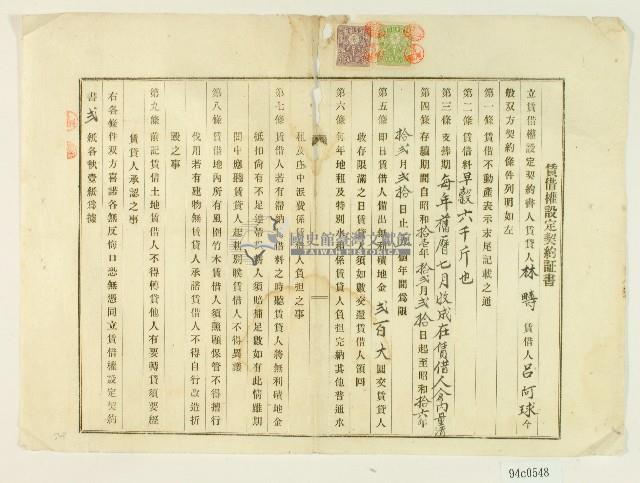 賃借權設定契約証書
立賃借權設定契約書人賃貸人林 賃借人呂阿球今
般双方契約條件列明如左
第一條賃借不動產表示末尾記載之通
第二條賃借料早穀六千斤也
第三條支拂期每年舊曆七月收成在賃借人
第四條存續期間自昭和拾壱年拾貳月貳拾日起至昭和拾六年
拾貳月貳拾日止 個年間為限
第五條即日賃借人備出無利磧地金貳百大圓交賃貸人
收存限滿之日賃貸人須如數交還賃借人領回
第六條每年地租及特別水租係賃貸人負担完納其他普通水
租及庄中派費係賃借人負担之事
第七條賃借人若有滯納賃借料之時聽賃貸人將無利磧地金
抵扣倘有不足 借人須賠補足數如有此情雖期
間中應聽賃貸人起耕別贌賃借人不得異議
第八條賃借地內所有風圍竹木賃借人須照顧保管不得擅行
伐用若有建物無賃貸人承諾賃借人不得自行改造折
毀之事
第九條前記賃借土地賃借人不得轉貸他人有要轉賃須要經
賃貸人承認之事
右各條件双方喜諾各無反悔口恐無憑同立賃借權設定契約
書貳紙各執壹紙為據
國史館臺灣文獻館
TAIWAN HISTORICA
94c0548